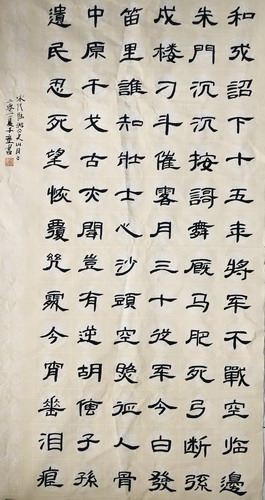 和戎詔下十五年將軍不戰空临邊
朱門沉沉按謌舞厩马肥死弓断弦
戍楼刁斗催落月三十從军今白發
笛里誰知壮士心沙頭空照征人骨
中原干戈古亦聞豈有逆胡傳子孫
遺民忍死望恢復幾處今宵垂泪痕